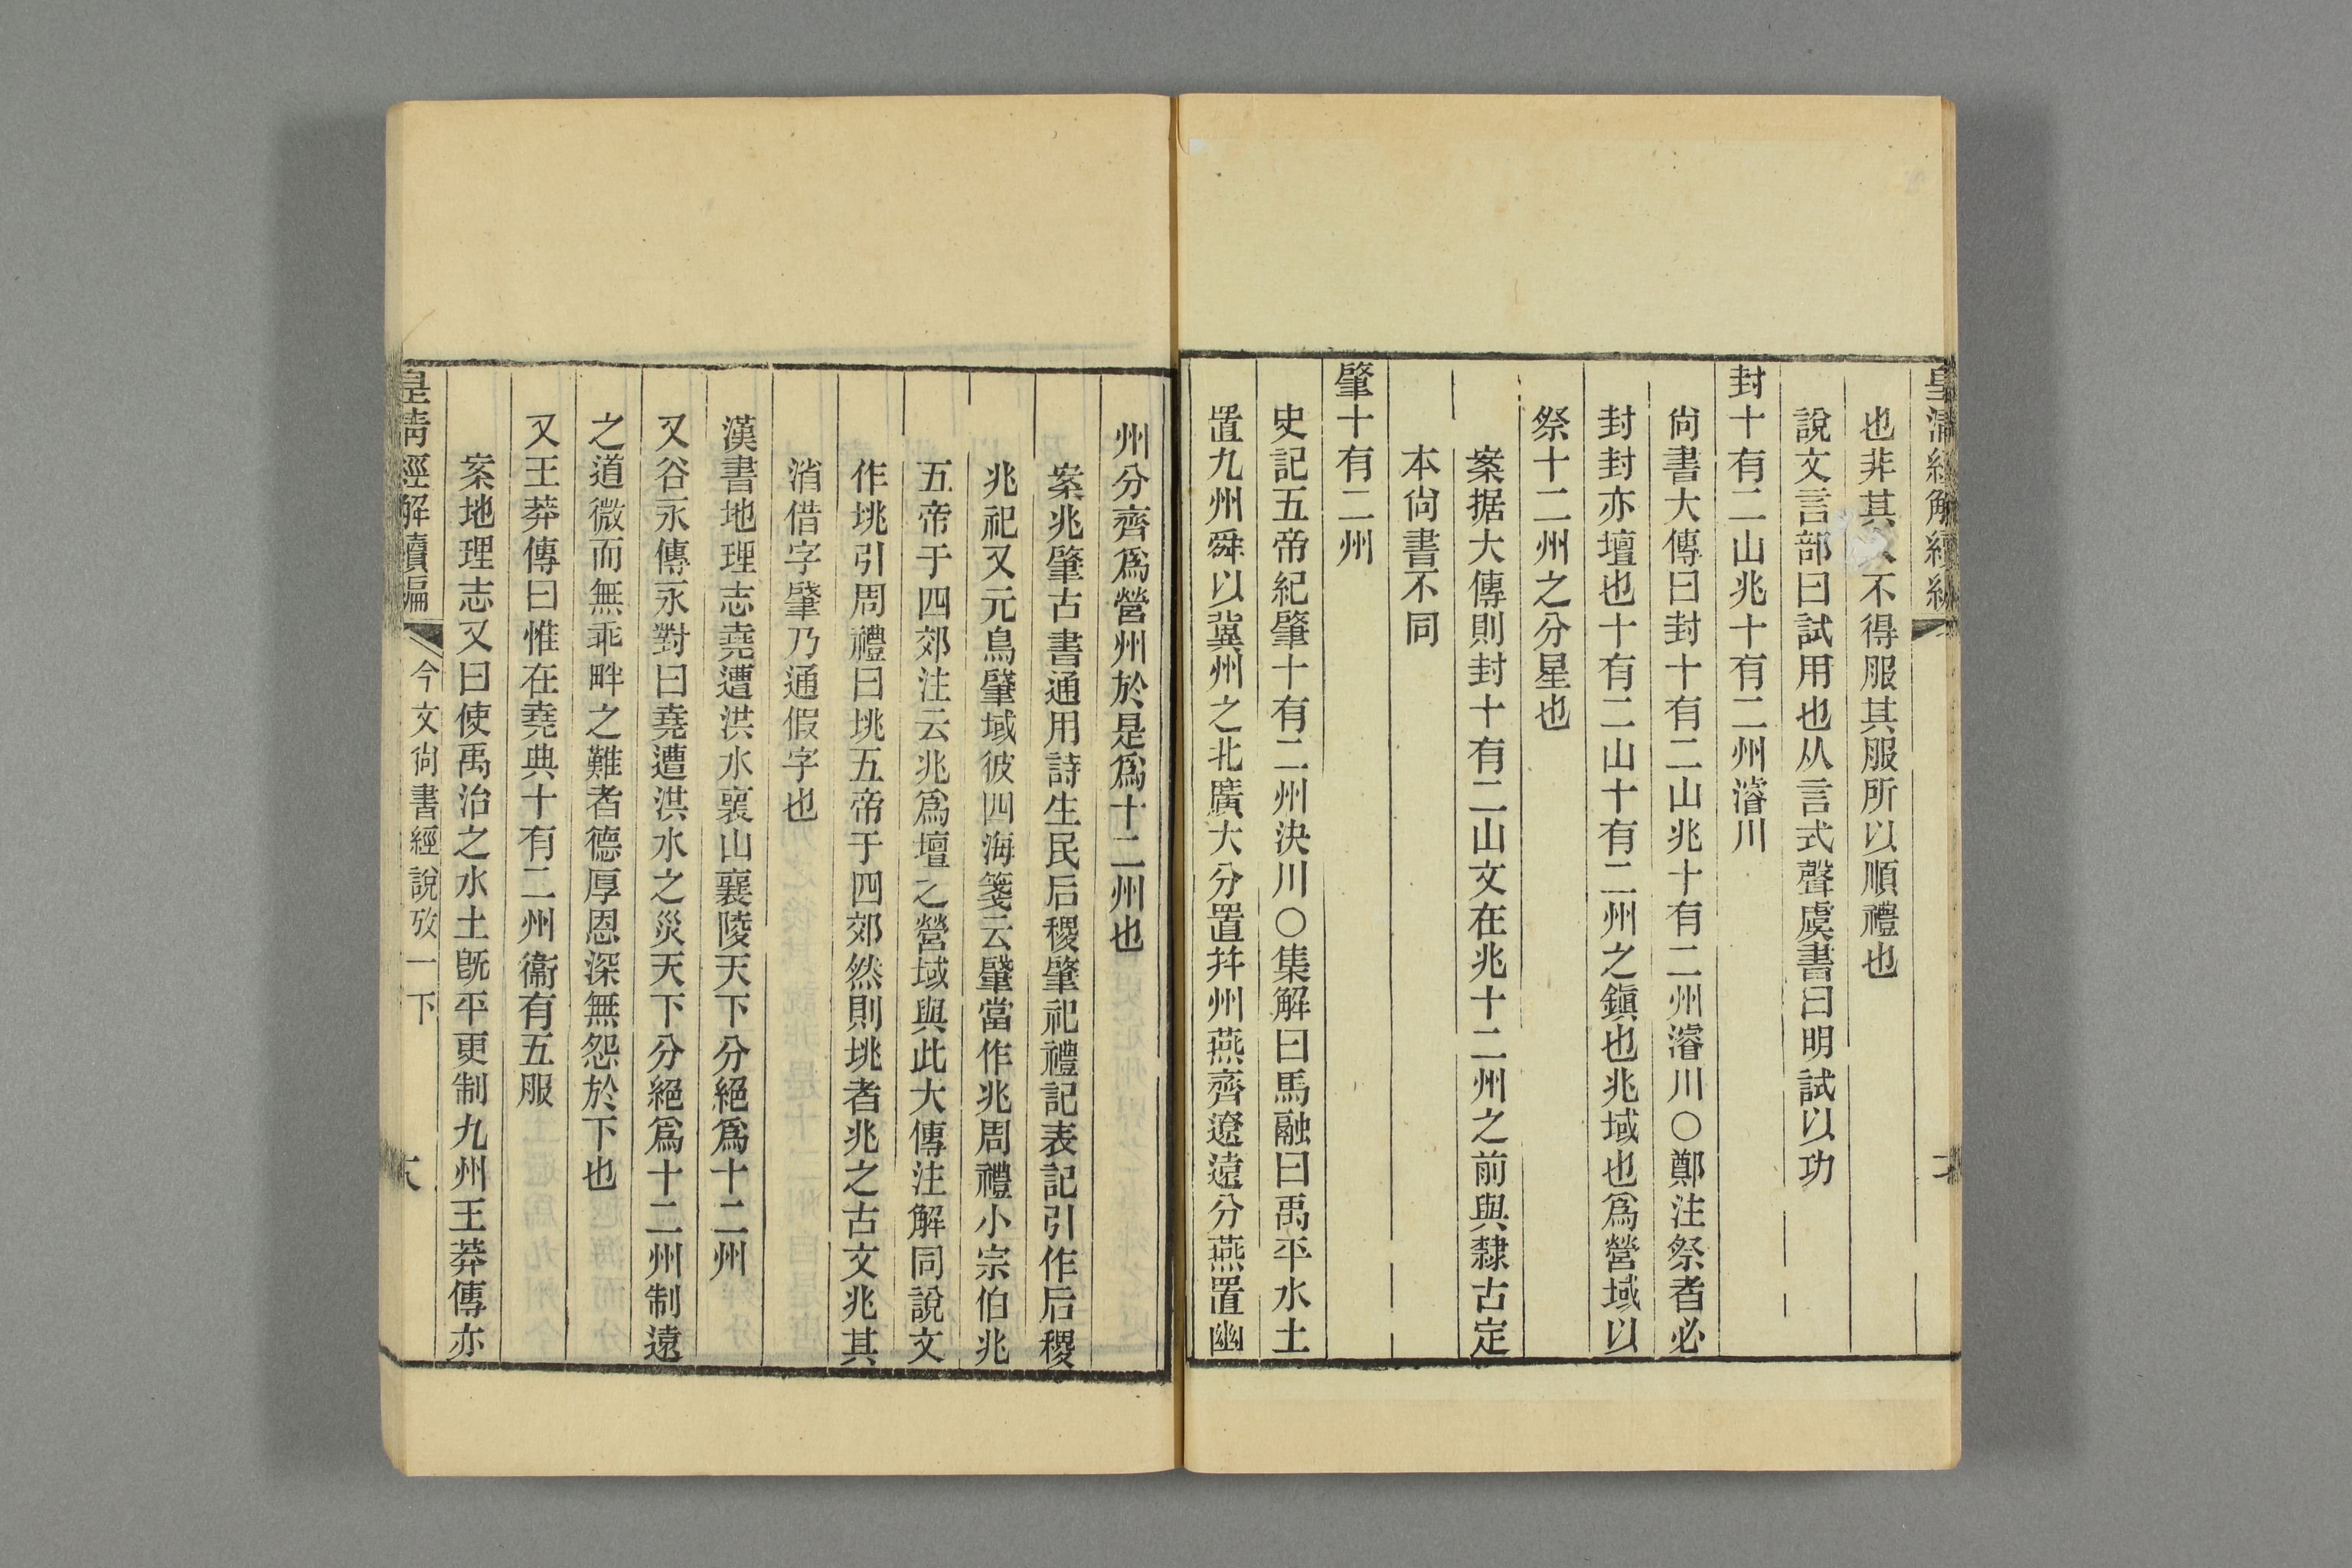 皇清經解續編
也非其人不得服其服所以順禮也
說文言部曰試用也从言式聲虞書曰明試以功
封十有二山兆十有二州濬川
尙書大傳曰封十有二山兆十有二州濬川○鄭注祭者必
封封亦壇也十有二山十有二州之鎭也兆域也爲營域以
祭十二州之分星也
案据大傳則封十有二山文在兆十二州之前與隸古定
本尙書不同
肇十有二州
史記五帝紀肇十有二州決川○集解曰馬融曰禹平水土
置九州舜以冀州之北廣大分置幷州燕齊遼遠分燕置幽
州分齊爲營州於是爲十二州也
案兆肇古書通用詩生民后稷肇祀禮記表記引作后稷
兆祀又元鳥肇域彼四海箋云肇當作兆周禮小宗伯兆
五帝于四郊注云兆爲壇之營域與此大傳注解同說文
作垗引周禮曰垗五帝于四郊然則垗者兆之古文兆其
消借字肇乃通假字也
漢書地理志堯遭洪水襄山襄陵天下分絕爲十二州
又谷永傳永對曰堯遭洪水之災天下分絕爲十二州制遠
之道微而無乖畔之難者德厚恩深無怨於下也
又王莽傳曰惟在堯典十有二州衞有五服
案地理志又曰使禹治之水土旣平更制九州王莽傳亦
皇清經解續編 今文尙書經說攷一下